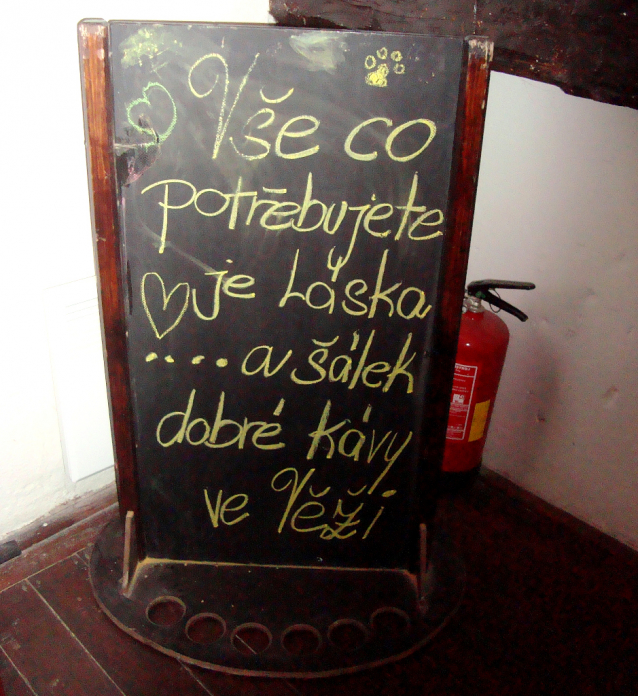 Vše co
potřebujete
je Láska
....a šálek
dobré kávy
ve Věži